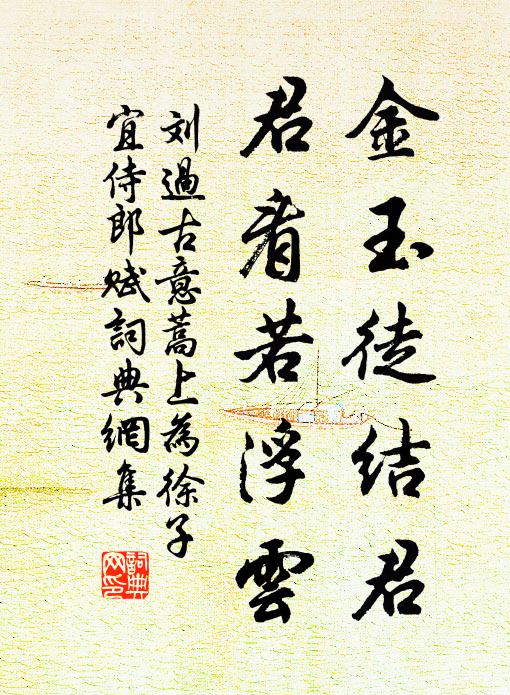 金玉徒结君
君看若浮雲
刘過古意蒿上為徐子
宜侍郎赋詞典網集
詞典
网印